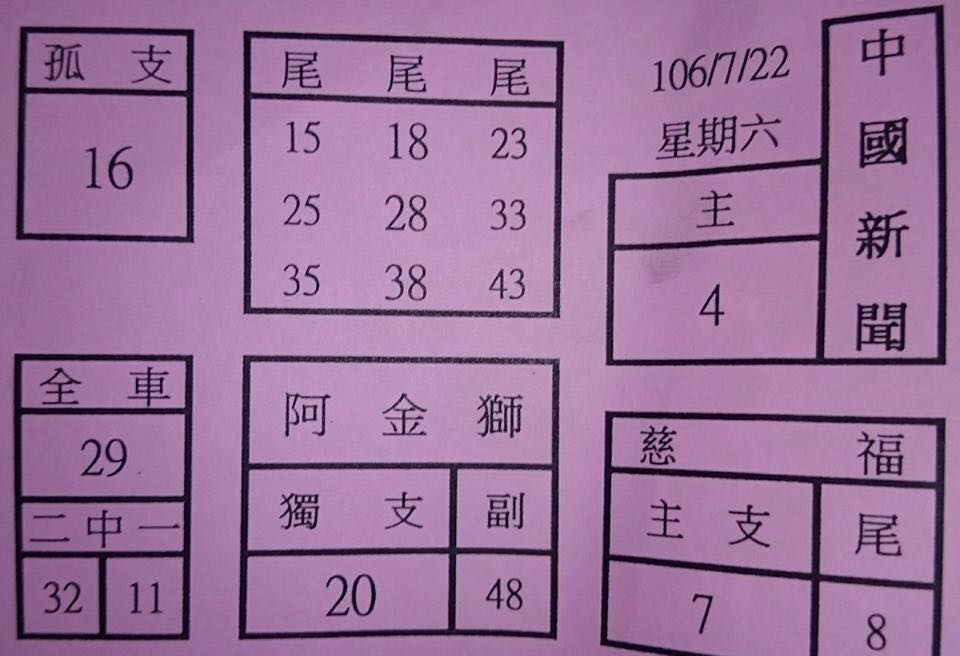 中國新聞
106/7/22
星期六
主
4
尾 尾 尾
15 18 23
25 28 33
35 38 43
孤 支
16
慈 福
主 支 尾
7 8
阿 金 獅
獨 支 副
20 48
全 車
29
二 中 一
32 11